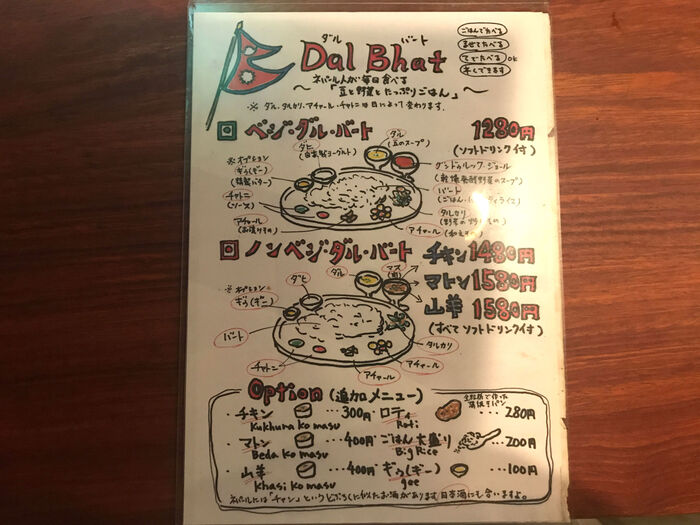 ダル バート
Dal Bhat
ネパール人が毎日食べる
～「豆と野菜とたっぷりごはん」～
※ ダル、タルカリ、アチャール・チャトニは日によって変わります。
ごはんでたべる
まぜてたべる
てでたべるOK
ベジ・ダル・バート 1280円
(ソフトドリンク付)
ダヒ
(自家製ヨーグルト)
ダル
(豆のスープ)
※オプション
ギウ(ギー)
(精製バター)
グンドゥルック・ジョール
(乾燥発酵野菜のスープ)
チャトニ
(ソース)
バート
タルカリ
アチャール
アチャール
ノンベジ・ダル・バート チキン1480円
マトン1580円
山羊 1580円
(すべてソフトドリンク付)
ダヒ
ダル
マス
(肉)
※オプション
ギウ(ギー)
バート
タルカリ
チャトニ
アチャール
アチャール
Option (追加メニュー)
チキン …300円
Kukhura ko masu
ロティ …280円
Roti
マトン …400円
Beda ko masu
ごはん大盛り …200円
Big Rice
山羊 …400円
Khasi ko masu
ギウ(ギー) …100円
gee
ネパールには「チャン」というどぶろくに似たお酒があります。日本酒にも合いますよ。